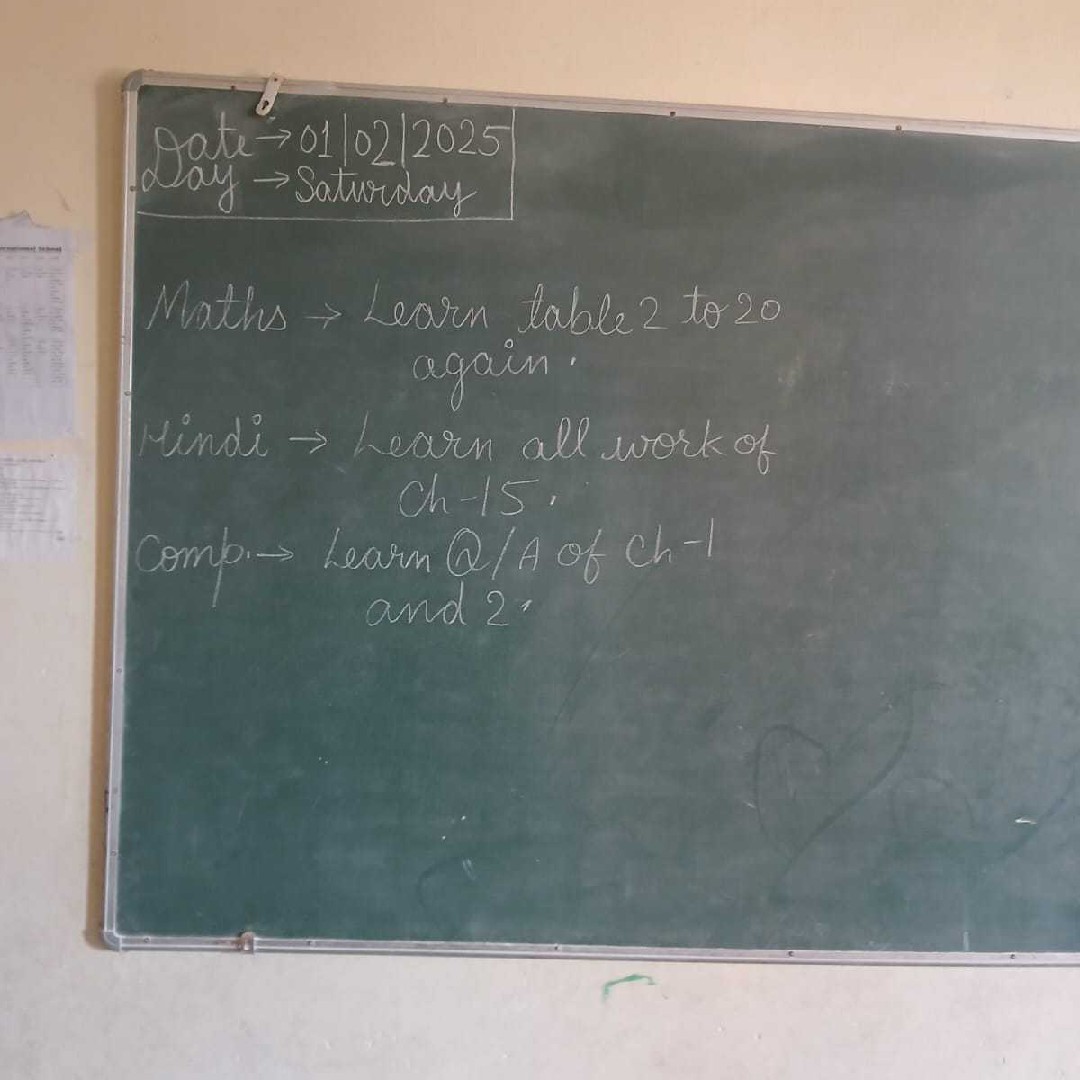 Date → 01|02|2025
Day → Saturday
Maths → Learn table 2 to 20
again.
Hindi → Learn all work of
Ch-15.
Comp. → Learn Q/A of Ch-1
and 2.